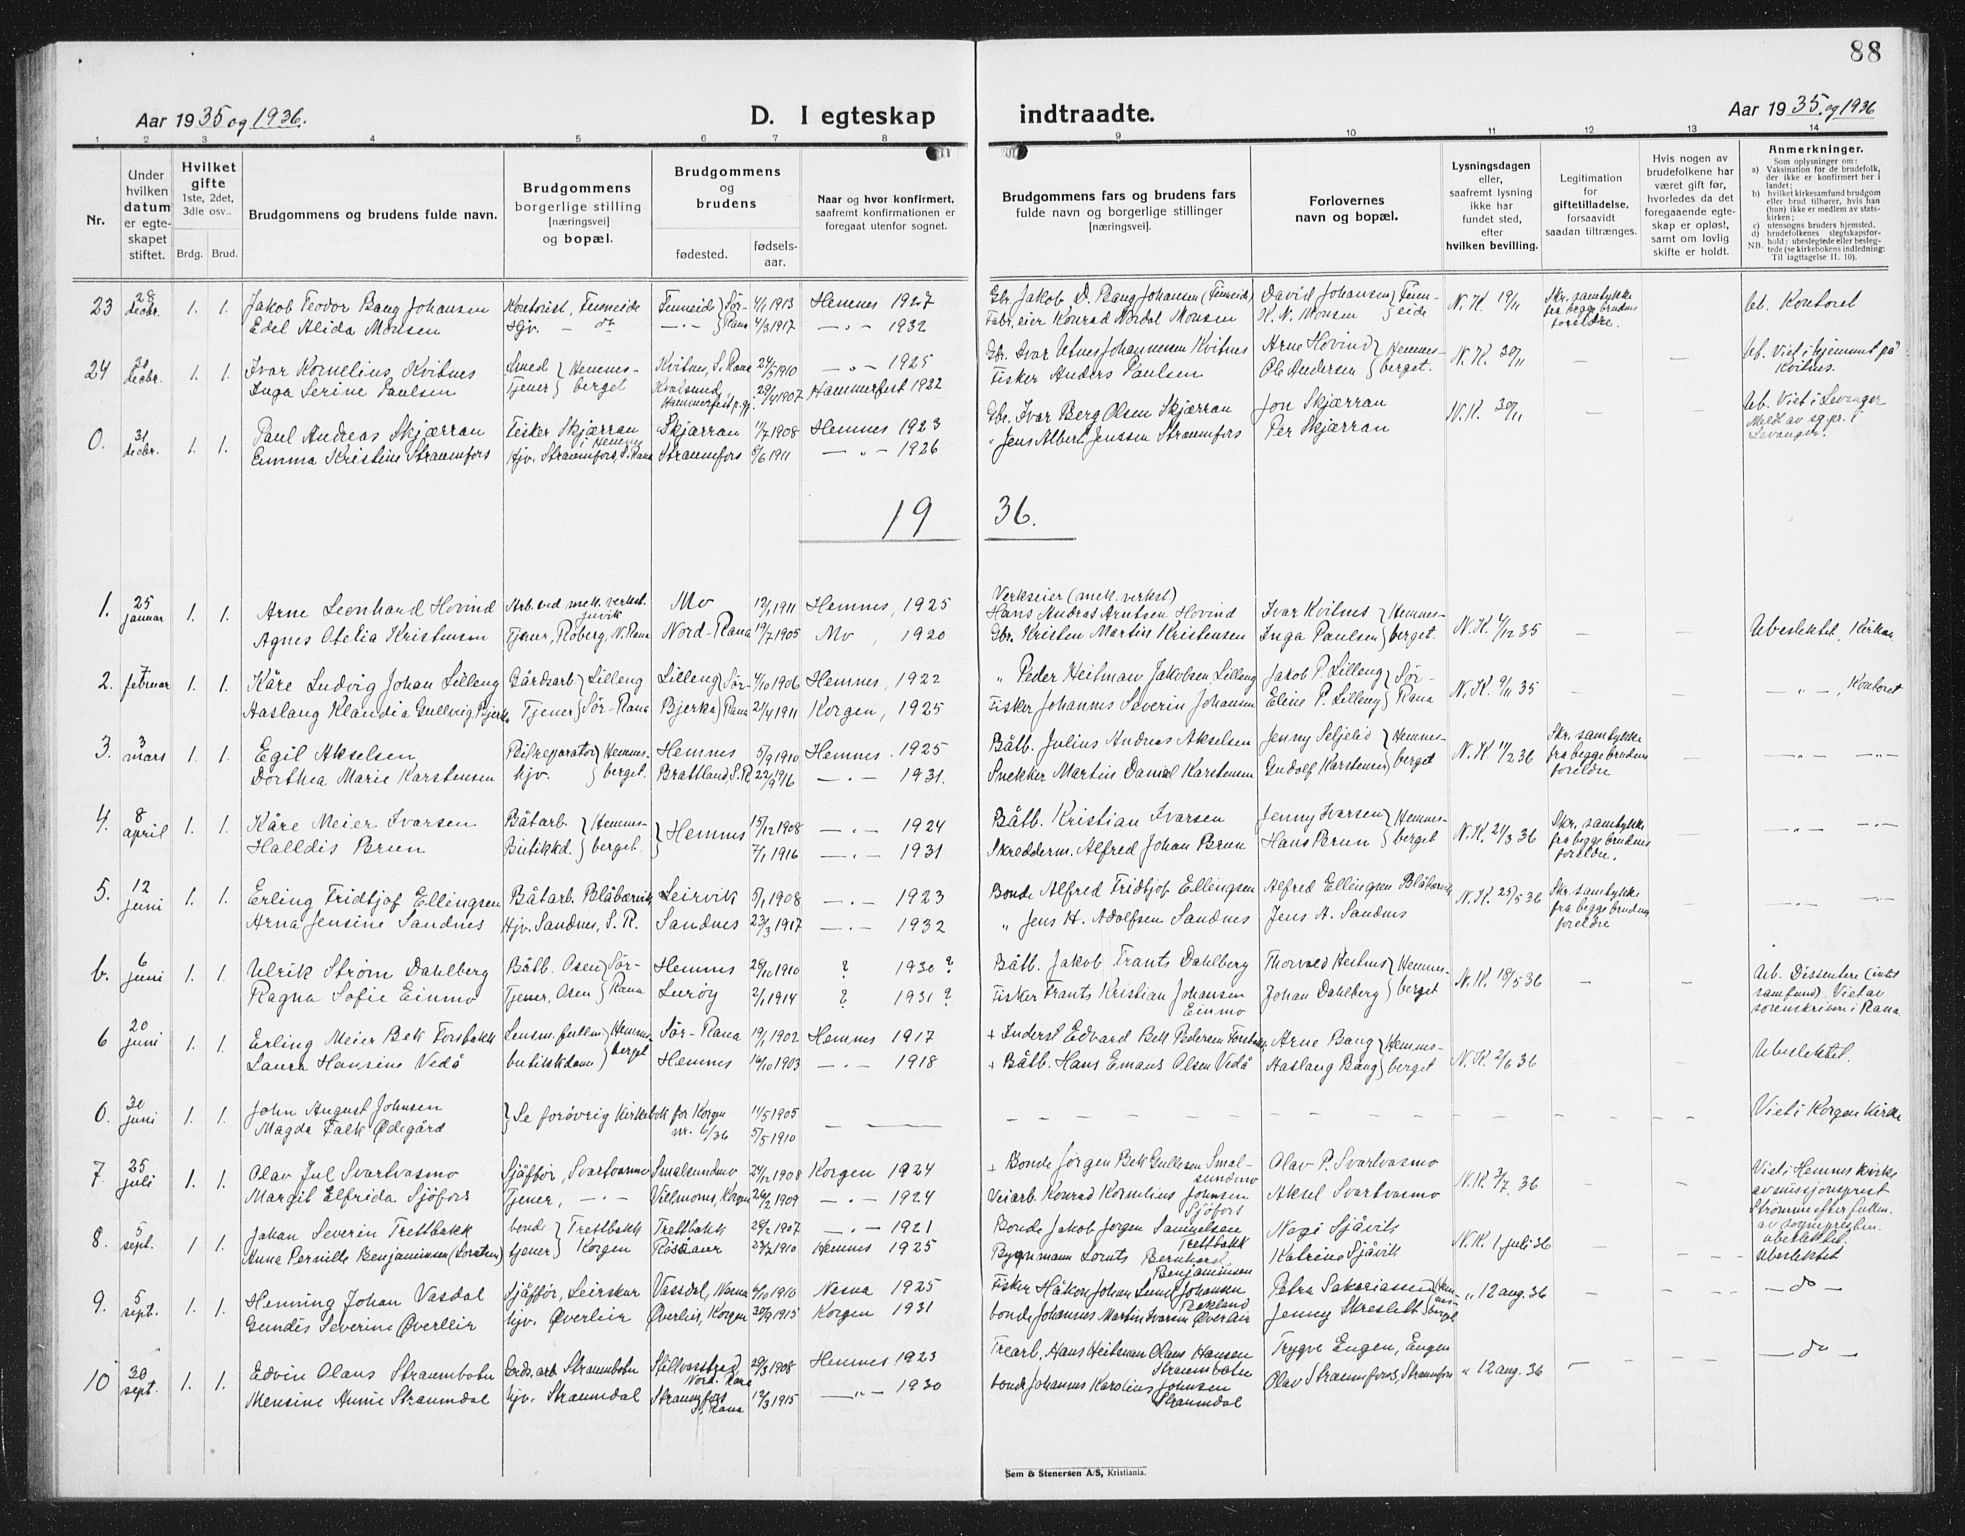 88
Aar 1935 og 1936.
D. I egteskap
indtraadte.
Aar 1935. og 1936
1 2 3 4 5 6 7 8 9 10 11 12 13 14
Nr.
Under hvilken datum er egteskapet stiftet.
Hvilket gifte 1ste, 2det, 3die osv..
Brdg. Brud.
Brudgommens og brudens fulde navn.
Brudgommens borgerlige stilling [næringsvei] og bopæl.
Brudgommens og brudens
fødested. fødsels-aar.
Naar og hvor konfirmert, saafremt konfirmationen er foregaat utenfor sognet.
Brudgommens fars og brudens fars fulde navn og borgerlige stillinger [næringsvei].
Forlovernes navn og bopæl.
Lysningsdagen eller, saafremt lysning ikke har fundet sted, efter hvilken bevilling.
Legitimation for giftetilladelse, forsaavidt saadan tiltrænges.
Hvis nogen av brudefolkene har været gift før, hvorledes da det foregaaende egteskap er opløst, samt om lovlig skifte er holdt.
Anmerkninger.
Som oplysninger om:
a) Vaksination for de brudefolk, der ikke er konfirmert her i landet;
b) hvilket kirkesamfund brudgom eller brud tilhører, hvis han (hun) ikke er medlem av statskirken;
c) utensogns bruders hjemsted.
d) brudefolkenes slegtskapsforhold: ubeslegtede eller beslegtede (se kirkebokens indledning: NB. Til iagttagelse II. 10).
23 28 decbr. 1. 1. Jakob Teodor Bang Johansen Kontorist, Finneide Finneid Sør- 4/1 1913 Hemnes 1927 Gbr. Jakob D. Bang Johansen (Finneid) David Johansen Finn- N.K. 19/11 Skr. samtykke fra begge brudens foreldre. Ub. Kontoret
Edel Alida Monsen Hjv. - do - " - Rana 4/3 1917 - " - 1932 Fabr. eier Konrad Nordal Monsen K. N. Monsen eide
24 31 decbr. 1. 1. Ivar Kornelius Kvitnes Smed Hemnes- Kvitnes, S. Rana 24/5 1910 - " - 1925 Gbr. Ivar Utnes Johannesen Kvitnes Arne Hovind Hemnes- N.K. 30/11 - - Ub. Viet i hjemmet på Kvitnes.
Inga Serine Paulsen Tjener berget Kvalsund Hammerfest p.gj. 29/4 1907 Hammerfest 1922 Fisker Anders Paulsen Ole Andersen berget.
0. 31 decbr. 1. 1. Paul Andreas Skjærran Fisker Skjærran i Hemnes Skjærran 11/7 1908 Hemnes 1923 Gbr. Ivar Berg Olsen Skjærran Jon Skjærran N.K. 30/11 - - Ub. Viet i Levanger Meldt av sg.pr. i Levanger.
Emma Kristine Straumfors Hjv. Straumfors, S. Rana Straumfors 6/6 1911 - " - 1926 " Jens Albert Jenssen Straumfors Per Skjærran
1936.
1. 25 januar 1. 1. Arne Leonhard Hovind Arb. ved mek. verkst. Mo 12/1 1911 Hemnes, 1925 Verkseier (mek. verkst) Hans Andreas Arntsen Hovind Ivar Kvitnes Hemnes- N.K. 4/12 35 - - Ubeslektet, Kirken
Agnes Otelia Kristensen Tjener, Røberg, N. Rana Nord-Rana 19/7 1905 Mo, 1920 Gbr. Kristen Martin Kristensen Inga Paulsen berget.
2. 7 februar 1. 1. Kåre Ludvig Johan Lilleng Gårdsarb Lilleng Lilleng Sør- 4/10 1906 Hemnes, 1922 " Peder Heitman Jakobsen Lilleng Jakob P. Lilleng Sør- N.K. 9/11 35 - - - " -, Kontoret
Aaslaug Klandia Gullvig Bjerka Tjener Sør-Rana Bjerka Rana 21/4 1911 Korgen, 1925 Fisker Johannes Severin Johansen Eline P. Lilleng Rana
3. 3 mars 1. 1. Egil Akselsen Bilreparatør Hemnes- Hemnes 5/9 1910 Hemnes 1925 Båtb. Julius Andreas Akselsen Jenny Seljelid Hemnes- N.K. 11/2 36 Skr. samtykke fra begge brudens foreldre - - " - - " -
Dorthea Marie Karstensen hjv. berget. Brattland, S.R 22/9 1916 - " - 1931. Snekker Martin Danial Karstensen Gudolf Karstensen berget
4. 8 april 1. 1. Kåre Meier Ivarsen Båtarb Hemnes- Hemnes 15/12 1908 - " - 1924 Båtb. Kristian Ivarsen Jenny Ivarsen Hemnes- N.K. 21/3 36 Skr. samtykke fra begge brudens foreldre. - - " - - " -
Halldis Brun Butikkd. berget. 7/1 1916 - " - 1931 Skredderm. Alfred Johan Brun Hans Brun berget
5. 12 juni 1. 1. Erling Fridtjof Ellingsen Båtarb. Blåbærvik Leirvik 5/1 1908 - " - 1923 Bonde Alfred Fridtjof Ellingsen Alfred Ellingsen Blåbærvik N.K. 25/5 36 Skr. samtykke fra begge brudens foreldre - - " - - " -
Arna Jensine Sandnes Hjv. Sandnes, S. R. Sandnes 23/3 1917 - " - 1932 " Jens H. Adolfsen Sandnes Jens A. Sandnes
b. 6 juni 1. 1. Ulrik Strøm Dahlberg Båtb. Osen Sør- Hemnes 26/10 1910 ? 1930 ? Båtb. Jakob Frants Dahlberg Thorvald Hestnes Hemnes- N.K. 18/5 36 - - Ub. Dissentere (intet samfund). Viet av sorenskriveren i Rana
Ragna Sofie Einmo Tjener, Osen Rana Lurøy 2/1 1914 ? 1931 ? Fisker Frants Kristian Johansen Einmo Johan Dahlberg berget
6 20 juni 1. 1. Erling Meier Bek Forsbakk Lensm. fullm. Hemnes- Sør-Rana 19/1 1902 Hemnes 1917 + Inderst Edvard Bek Pedersen Forsbakk Arne Bang Hemnes- N.K. 2/6 36 - - Ubeslektet.
Laura Hansine Vedå butikkdame berget Hemnes 14/10 1903 - " - 1918 + Båtb. Hans Emans Olsen Vedå Aaslaug Bang berget
0. 30 juni 1. 1. John August Johnsen Se forøvrig kirkebok for Korgen nr. 6/36 11/5 1905 - - Viet i Korgen Kirke
Magda Falk Ødegård 5/5 1910
7. 25 juli 1. 1. Olav Jul Svartvasmo Sjåffør, Svartvasmo Smalsundmo 24/12 1908 Korgen 1924 + Bonde Jørgen Bek Gullesen Smalsundmo Olav P. Svartvasmo N.K. 3/7. 36 - - Viet i Hemnes kirke av misjonsprest Strømme efter fullm. av sognepresten. ubeslektet.
Margit Elfrida Sjøfors Tjener, - " - Villmones, Korgen 26/2 1909 - " - 1924 Veiarb. Konrad Kornelius Johnsen Sjøfors Aksel Svartvasmo
8. 5 sept. 1. 1. Johan Severin Trettbakk bonde Trettbakk Trettbakk 28/2 1907 - " - 1921 Bonde Jakob Jørgen Samuelsen Trettbakk Nagi Sjåvik N.K. 1 juli 36 - - Ubeslektet
Anna Pernille Benjaminsen (Lorntsen) tjener Korgen Røsdaur 23/3 1910 Hemnes 1925 Bygnmann Lornts Bernhard Benjaminsen Katrine Sjåvik
9. 5 sept. 1. 1. Henning Johan Vasdal Sjåffør, Leirskar Vassdal, Nesna 6/10 1910 Nesna 1925 Fisker Håkon Johan Lund Johansen Bakland Petra Sakariassen Hemnes- " 12 aug. 36 - - - do -
Gundis Severine Øverleir hjv. Øverleir Øverleir, Korgen 30/9 1915 Korgen 1931 bonde Johannes Martin Ivarsen Øverleir Jenny Streslett berget
10 30 sept. 1. 1. Edvin Olaus Straumbotn Gårdsarb Straumbotn Nord. Rana 29/3 1908 Hemnes 1923 Trearb. Hans Heitman Olaus Hansen Straumbotn Trygve Engen, Engen " 12 aug. 36 - - - do -
Mensine Annie Straumdal hjv. Straumdal Straumfors S. Rana 12/3 1915 - " - 1930 bonde Johannes Karolius Johnsen Straumdal Olav Straumfors, Straumfors
Sem & Stenersen A/S, Kristiania.